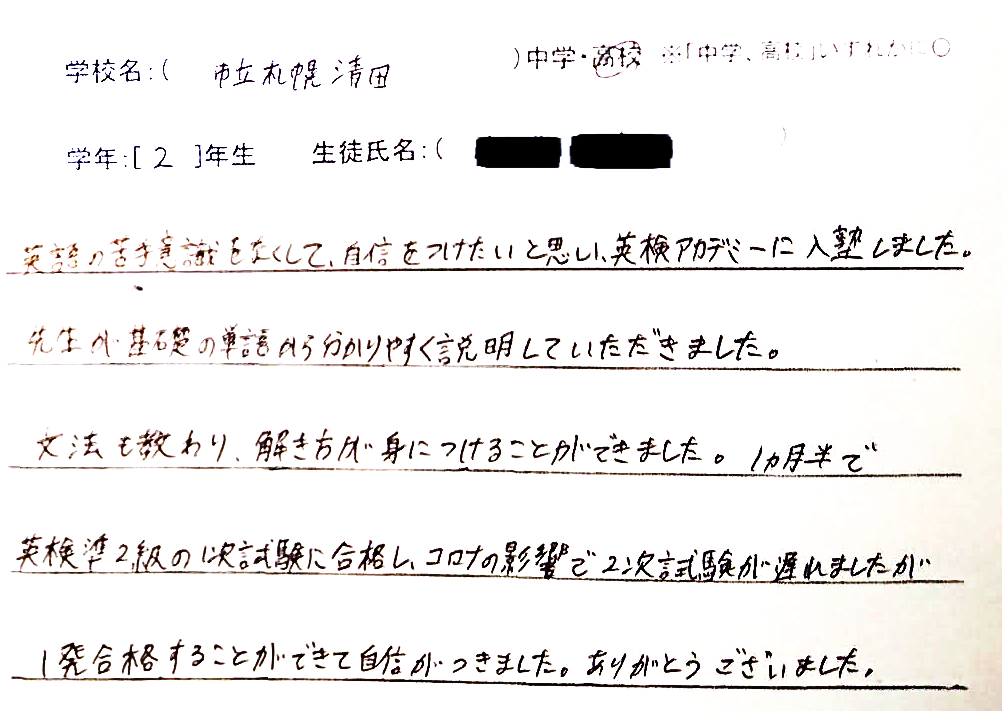 学校名:( 市立札幌清田 )中学・高校 ※「中学、高校」いずれかに○
学年:[ 2 ]年生 生徒氏名:( )
英語の苦手意識をなくして、自信をつけたいと思い、英検アカデミーに入塾しました。
先生が基礎の単語から分かりやすく説明していただきました。
文法も教わり、解き方が身につけることができました。1ヵ月半で
英検準2級の1次試験に合格し、コロナの影響で2次試験が遅れましたが
1発合格することができて自信がつきました。ありがとうございました。